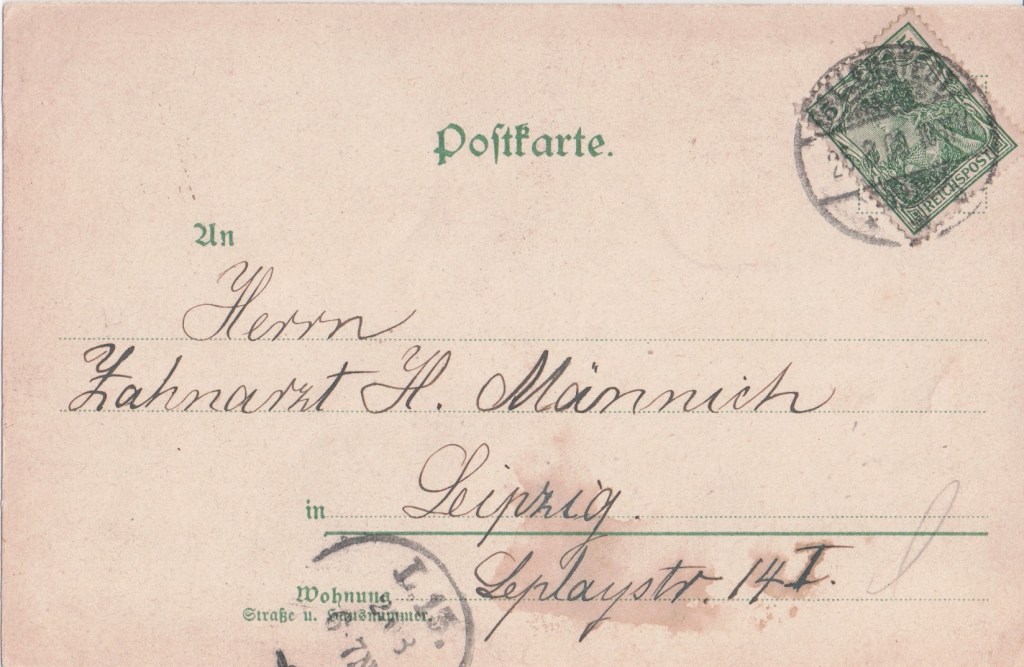 Postkarte.
REICHSPOST
An
Herrn
Zahnarzt H. Männich
in Leipzig.
Leplaystr. 14 I.
Wohnung
Straße u. Hausnummer.
L. 13.